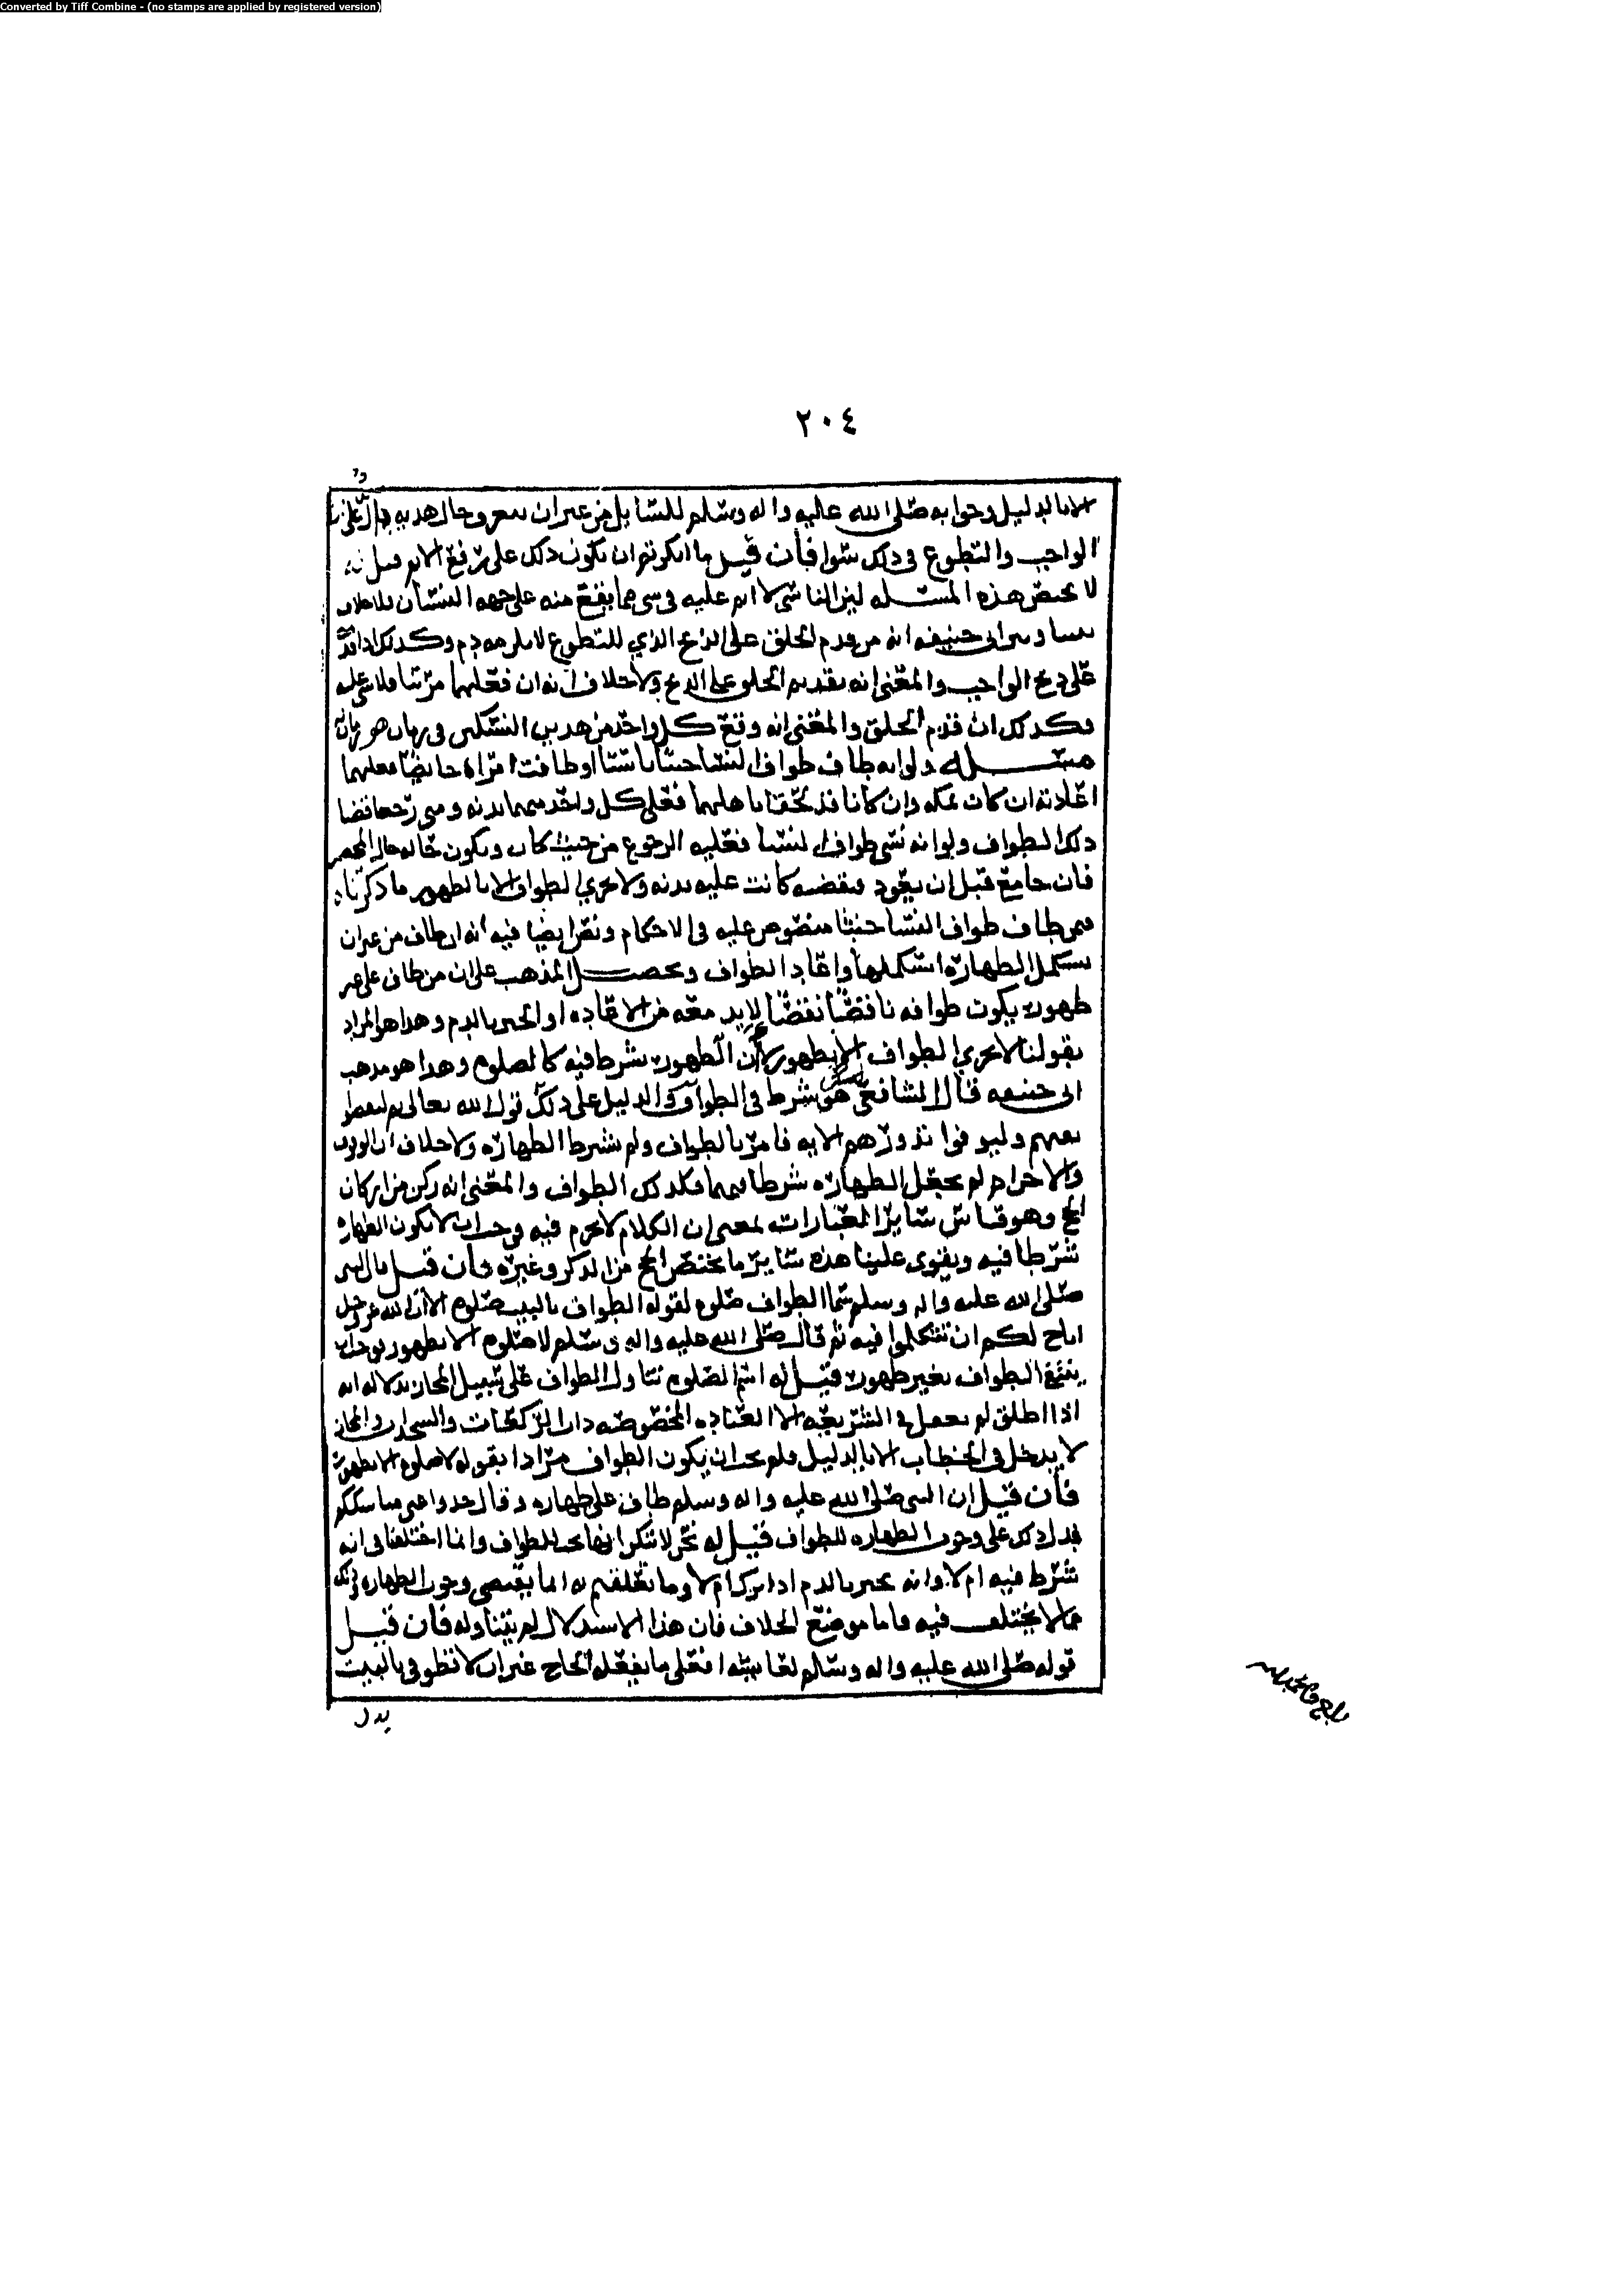 Converted by Tiff Combine - (no stamps are applied by registered version)
٢٠٤
الا بالدليل وجوابه صلى الله عليه واله وسلم للسايل من غير ان يتعرف حال هديه يدل على ان
الواجب والتطوع في ذلك سوا فان قيل ما انكرتم ان يكون ذلك على رفع الاثم قيل له
لا يختص هذه المسله لان الناسي لا اثم عليه في شي مما يقع منه على جهه النسيان بلا خلاف
بيننا وبين ابي حنيفه انه من قدم الحلق على الذبح الذي للتطوع لا يلزمه دم وكذلك اذا قدم
على ذبح الواجب والمعنى انه تقديم الحلق على الذبح ولا خلاف انه ان فعلهما مرتبا فلا شي عليه
فكذلك ان قدم الحلق والمعنى انه وقع كل واحد من هذين النسكين في زمان هو زمانه
مسله ولو انه طاف طواف النسا جنبا ناسيا او طافت امراه حايضا فعليهما
اعادته ان كانا بمكه وان كانا قد لحقا باهلهما فعلى كل واحد منهما بدنه ومتى رجعا قضيا
ذلك الطواف ولو انه نسي طواف النسا فعليه الرجوع من حيث كان ويكون حاله حال المحصر
فان جامع قبل ان يعود فيقضيه كانت عليه بدنه ولا يجزي الطواف الا بالطهور ما ذكرناه
فيمن طاف طواف النسا جنبا منصوص عليه في الاحكام ونص ايضا فيه انه ان طاف من غير ان
يستكمل الطهاره استكملها واعاد الطواف وتحصيل المذهب على ان من طاف على غير
طهور يكون طوافه ناقصا نقصا لا بد معه من الاعاده او الجبر بالدم وهذا هو المراد
بقولنا لا يجزي الطواف الا بطهور لا ان الطهور شرط فيه كالصلوه وهذا هو مذهب
ابي حنيفه قال الشافعي هو شرط في الطواف والدليل على ذلك قول الله تعالى ثم ليقضوا
تفثهم وليوفوا نذورهم الايه فامر بالطواف ولم يشترط الطهاره ولا خلاف ان الوقوف
والاحرام لم تجعل الطهاره شرطا فيهما فكذلك الطواف والمعنى انه ركن من اركان
الحج وهو قياس ساير العبارات بمعنى ان الكلام لا يحرم فيه فوجب ان لا يكون الطهاره
شرطا فيه ويقوي علينا هذه ساير ما يختص الحج من الذكر وغيره فان قيل فان النبي
صلى الله عليه واله وسلم سما الطواف صلوه لقوله الطواف بالبيت صلوه الا ان الله عز وجل
اباح لكم ان تتكلموا فيه ثم قال صلى الله عليه واله وسلم لا صلوه الا بطهور فوجب ان
ينتفي الطواف بغير طهور قيل له اسم الصلوه تناول الطواف على سبيل المجاز بدلاله انه
اذا اطلق لم يعمل في الشريعه الا العباده المخصوصه ذات الركعات والسجدات والمجاز
لا يدخل في الخطاب الا بالدليل فلم يجب ان يكون الطواف مرادا بقوله لا صلوه الا بطهور
فان قيل ان النبي صلى الله عليه واله وسلم طاف على طهاره وقال خذوا عني مناسككم
فدل ذلك على وجوب الطهاره للطواف قيل له نحن لا ننكر انها تجب للطواف وانما اختلفنا في انه
شرط فيه ام لا وانه يجبر بالدم اذا ترك ام لا وما تعلقتم به انما يقتضي وجوب الطهاره وذلك
مما لا يختلف فيه فاما موضع الخلاف فان هذا الاستدلال لم يتناوله فان قيل
قوله صلى الله عليه واله وسلم لعايشه افعلي ما يفعله الحاج غير ان لا تطوفي بالبيت
يدل